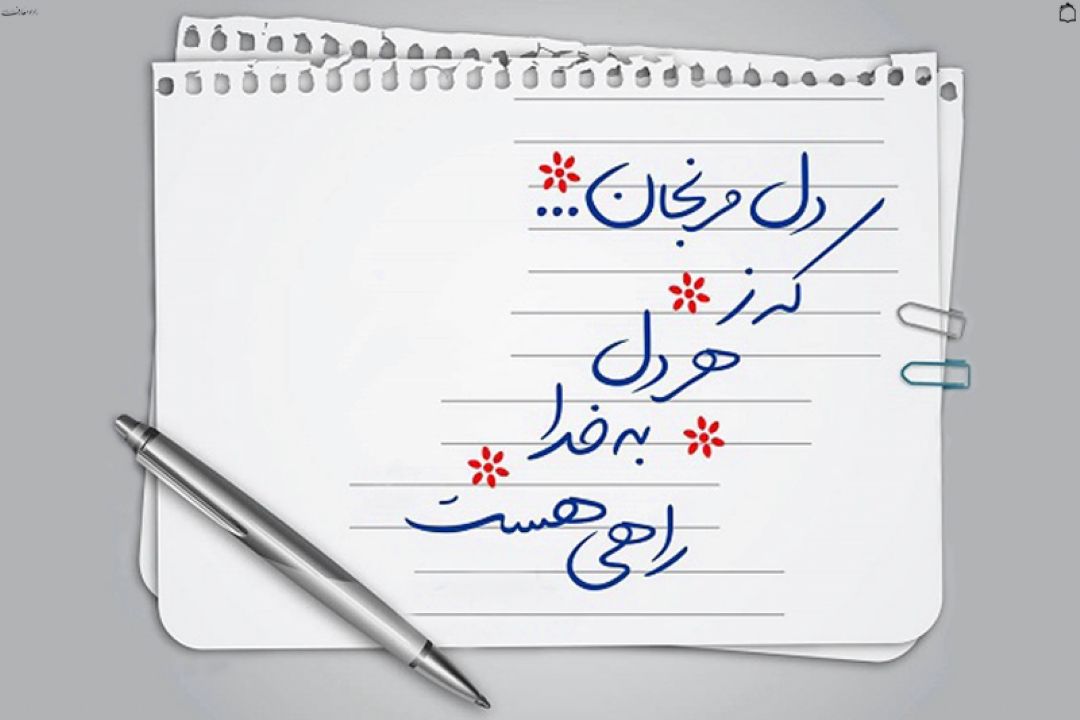 دل مرنجان...
که ز
هر دل
به خدا
راهی هست